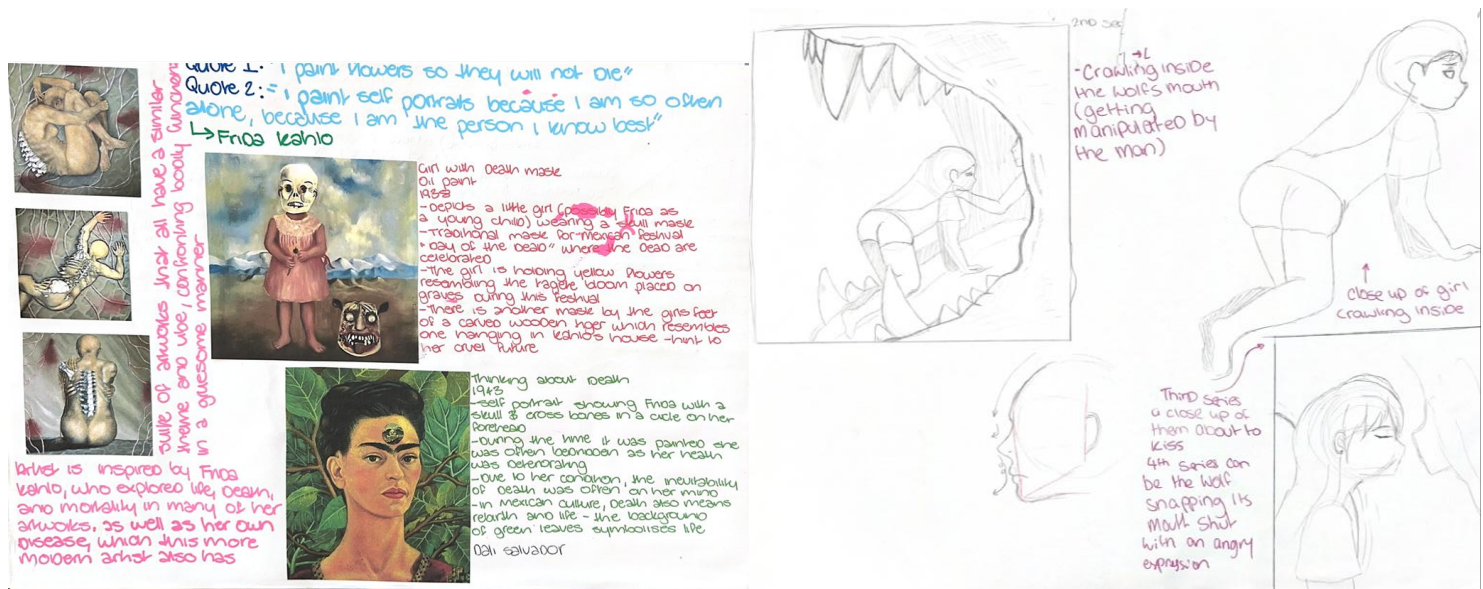 Quote 1: "I paint flowers so they will not die"
Quote 2: = "I paint self portraits because I am so often
alone, because I am the person I know best"
Frida Kahlo
suite of artworks that all have a similar
theme and vibe, confronting bodily
in a gruesome manner
Girl with Death mask
Oil paint
1938
-Depicts a little girl (possibly Frida as
a young child) wearing a skull mask
-Traditional mask for Mexican festival
"Day of the Dead" where the Dead are
celebrated
-The girl is holding yellow flowers
resembling the tagete bloom placed on
graves during this festival
-There is another mask by the girls feet
of a carved wooden tiger which resembles
one hanging in Kahlo's house -hint to
her cruel future
Thinking about Death
1943
-self portrait showing Frida with a
skull & cross bones in a circle on her
forehead
-During the time it was painted she
was often bedridden as her health
was deteriorating
-Due to her condition, the inevitability
of death was often on her mind
-in Mexican culture, Death also means
rebirth and life - the background
of green leaves symbolises life
Dali Salvador
Artist is inspired by Frida
Kahlo, who explored life, Death,
and mortality in many of her
artworks, as well as her own
Disease, which this more
modern artist also has
2nd
-Crawling inside
the wolf's mouth
(getting
manipulated by
the man)
close up of girl
crawling inside
Third series
a close up of
them about to
kiss
4th series can
be the wolf
snapping its
mouth shut
with an angry
expression